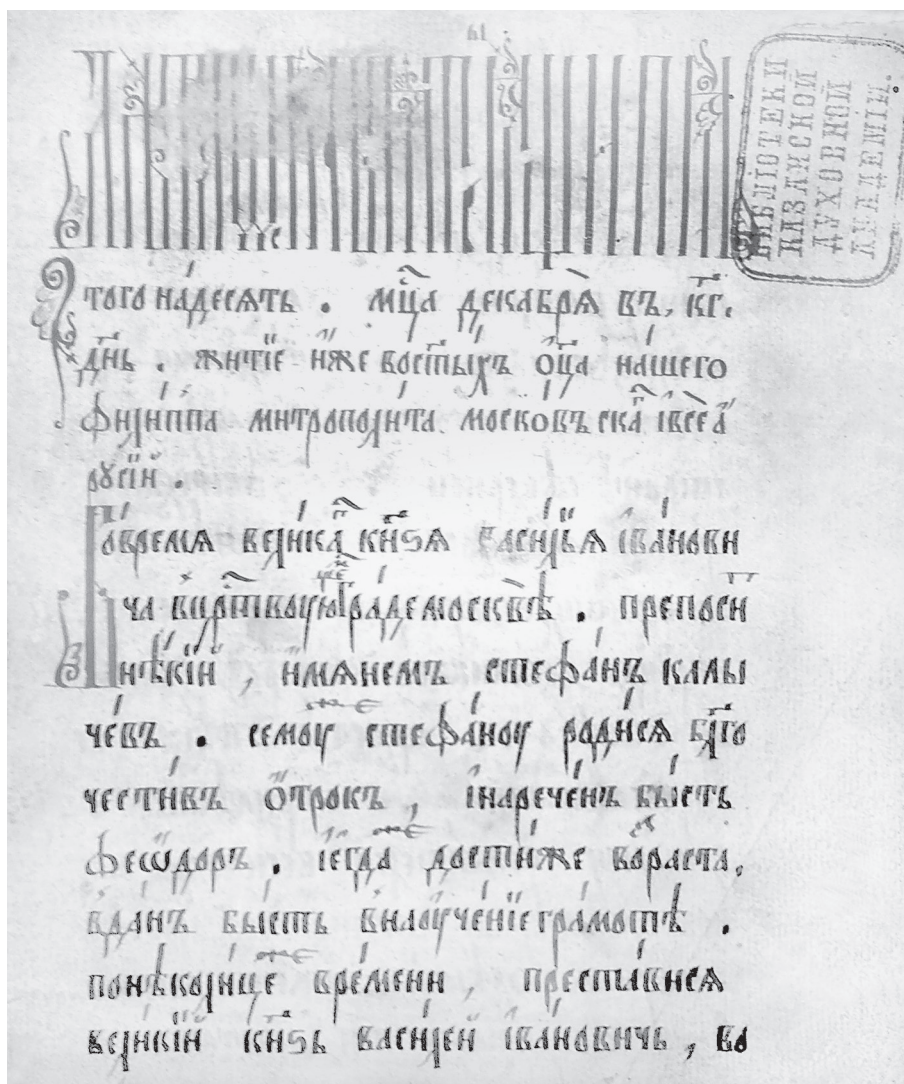 БИБЛIОТЕКИ
КАЗАНСКОЙ
ДУХОВНОЙ
АКАДЕМIИ.
того на́десять . мц҃а декабря̀ въ, кг҃.
дн҃ь . житїе и҆́же во ст҃ы́хъ ѻ҆ц҃а на́шего
фили́ппа митрополи́та московъска і҆ всеа̀
рꙋсїи .
Во́ время вели́ка кн҃ѕя васи́лья і҆ва́нови
ча
граде москвѣ̀ . препоси
нѣ́кїй , и҆́мянемъ стефа́нъ калы
че́въ . семоу стефа́ноу роди́ся бл҃го
чести́въ ѻ҆трокъ , і҆наречѐнъ бы́сть
феѡдоръ . і҆егда̀ дости́же во́раста,
вда́нъ бы́сть внаоуче́нїе гра́мотѣ .
понѣко́лице вре́мени , преста́вися
вели́кїй кн҃ѕь васи́лей і҆ва́новичь , во